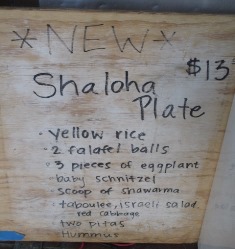 *NEW*
$13
Shaloha
Plate
• yellow rice
• 2 falafel balls
• 3 pieces of eggplant
baby schnitzel
scoop of shawarma
• taboulee, israeli salad
red cabbage
two pitas
Hummus